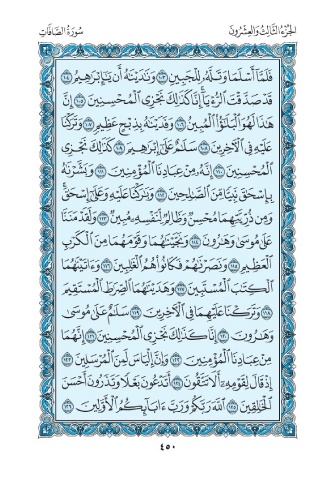 الجُزءُ الثَّالِثُ وَالعِشرُونَ سُورَةُ الصَّافَّاتِ
فَلَمَّآ أَسْلَمَا وَتَلَّهُۥ لِلْجَبِينِ ١٠٣ وَنَٰدَيْنَٰهُ أَن يَٰٓإِبْرَٰهِيمُ ١٠٤
قَدْ صَدَّقْتَ ٱلرُّءْيَآ إِنَّا كَذَٰلِكَ نَجْزِى ٱلْمُحْسِنِينَ ١٠٥ إِنَّ
هَٰذَا لَهُوَ ٱلْبَلَٰٓؤُا۟ ٱلْمُبِينُ ١٠٦ وَفَدَيْنَٰهُ بِذِبْحٍ عَظِيمٍ ١٠٧ وَتَرَكْنَا
عَلَيْهِ فِى ٱلْءَاخِرِينَ ١٠٨ سَلَٰمٌ عَلَىٰٓ إِبْرَٰهِيمَ ١٠٩ كَذَٰلِكَ نَجْزِى
ٱلْمُحْسِنِينَ ١١٠ إِنَّهُۥ مِنْ عِبَادِنَا ٱلْمُؤْمِنِينَ ١١١ وَبَشَّرْنَٰهُ
بِإِسْحَٰقَ نَبِيًّا مِّنَ ٱلصَّٰلِحِينَ ١١٢ وَبَٰرَكْنَا عَلَيْهِ وَعَلَىٰٓ إِسْحَٰقَ
وَمِن ذُرِّيَّتِهِمَا مُحْسِنٌ وَظَالِمٌ لِّنَفْسِهِۦ مُبِينٌ ١١٣ وَلَقَدْ مَنَنَّا
عَلَىٰ مُوسَىٰ وَهَٰرُونَ ١١٤ وَنَجَّيْنَٰهُمَا وَقَوْمَهُمَا مِنَ ٱلْكَرْبِ
ٱلْعَظِيمِ ١١٥ وَنَصَرْنَٰهُمْ فَكَانُوا۟ هُمُ ٱلْغَٰلِبِينَ ١١٦ وَءَاتَيْنَٰهُمَا
ٱلْكِتَٰبَ ٱلْمُسْتَبِينَ ١١٧ وَهَدَيْنَٰهُمَا ٱلصِّرَٰطَ ٱلْمُسْتَقِيمَ
١١٨ وَتَرَكْنَا عَلَيْهِمَا فِى ٱلْءَاخِرِينَ ١١٩ سَلَٰمٌ عَلَىٰ مُوسَىٰ
وَهَٰرُونَ ١٢٠ إِنَّا كَذَٰلِكَ نَجْزِى ٱلْمُحْسِنِينَ ١٢١ إِنَّهُمَا
مِنْ عِبَادِنَا ٱلْمُؤْمِنِينَ ١٢٢ وَإِنَّ إِلْيَاسَ لَمِنَ ٱلْمُرْسَلِينَ ١٢٣
إِذْ قَالَ لِقَوْمِهِۦٓ أَلَا تَتَّقُونَ ١٢٤ أَتَدْعُونَ بَعْلًا وَتَذَرُونَ أَحْسَنَ
ٱلْخَٰلِقِينَ ١٢٥ ٱللَّهَ رَبَّكُمْ وَرَبَّ ءَابَآئِكُمُ ٱلْأَوَّلِينَ ١٢٦
٤٥٠